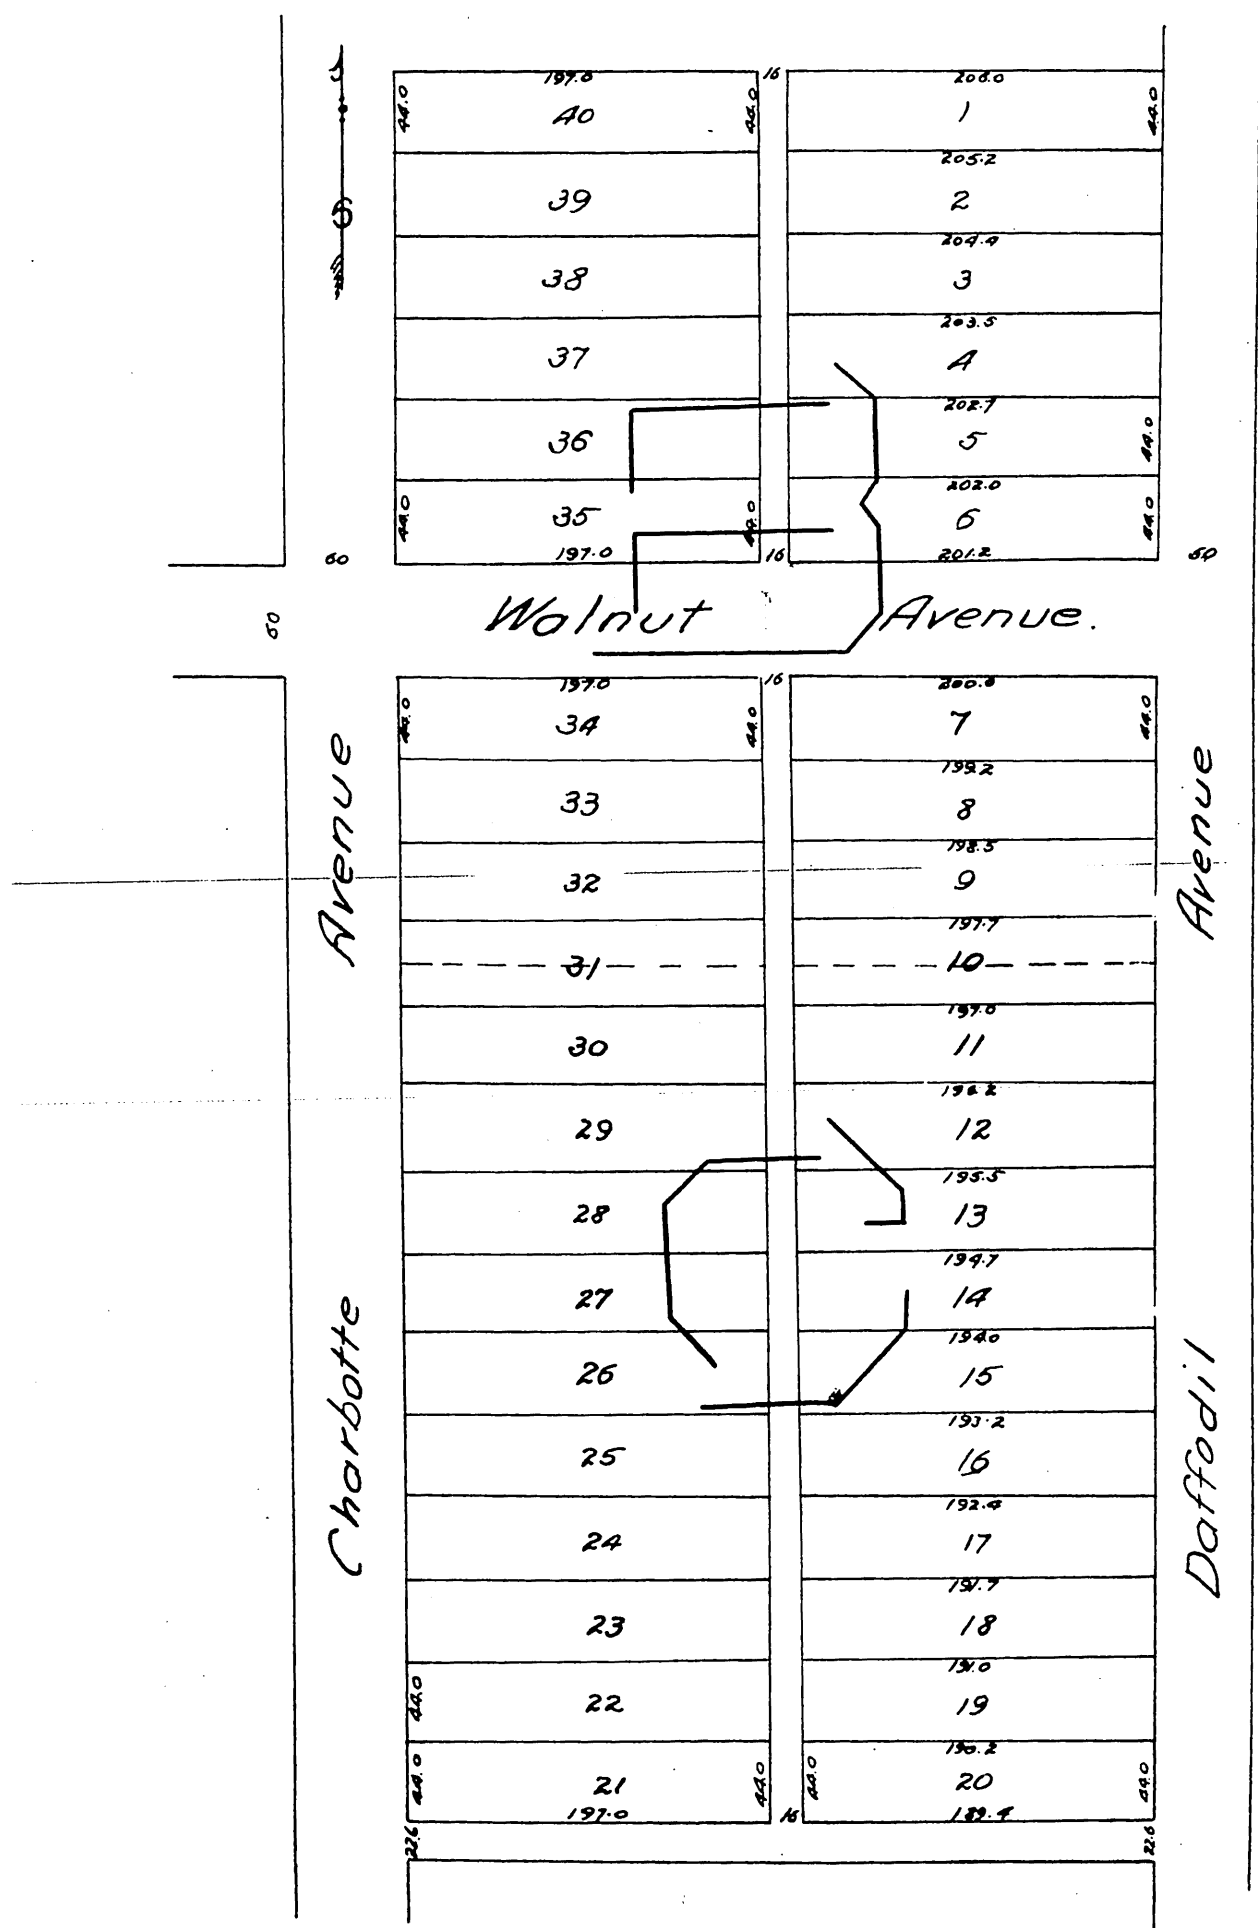 197.0 16 206.0
44.0 40 44.0 1 44.0
205.2
39 2
204.4
38 3
203.5
37 4
202.7
36 5 44.0
202.0
44.0 35 44.0 6 44.0
60 197.0 16 201.2 50
60 Walnut Avenue.
197.0 16 200.0
44.0 34 44.0 7 44.0
199.2
33 8
198.5
32 9
197.7
31 10
197.0
30 11
196.2
29 12
195.5
28 13
194.7
27 14
194.0
26 15
193.2
25 16
192.4
24 17
191.7
23 18
191.0
44.0 22 19
190.2
44.0 21 44.0 44.0 20 44.0
197.0 16 189.4
22.6 22.6
Charbotte Avenue
Daffodil Avenue
B
C